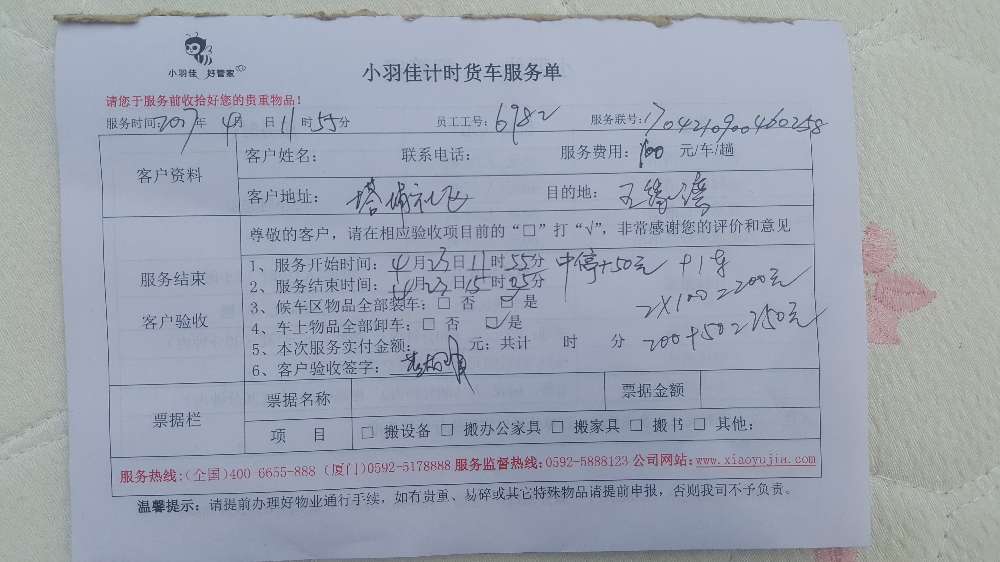 小羽佳 好管家
小羽佳计时货车服务单
请您于服务前收拾好您的贵重物品!
服务时间: 2017年 4月 日 11时 55分 员工工号: 6982 服务联号:
客户资料
客户姓名: 联系电话: 服务费用: 100 元/车/趟
客户地址: 塔埔社 目的地:
服务结束
客户验收
尊敬的客户,请在相应验收项目前的“□”打“√”,非常感谢您的评价和意见
1、服务开始时间: 4月23日11时55分 中停+50元 +1车
2、服务结束时间: 4月23日15时05分 2×100=200元
3、候车区物品全部装车: □ 否 ☑ 是
4、车上物品全部卸车: □ 否 ☑ 是
5、本次服务实付金额: 元; 共计 时 分 200+50=250元
6、客户验收签字:
票据栏
票据名称 票据金额
项 目 □ 搬设备 □ 搬办公家具 □ 搬家具 □ 搬书 □ 其他:
服务热线:(全国)400 6655-888 (厦门)0592-5178888 服务监督热线:0592-5888123 公司网站:www.xiaoyujia.com
温馨提示: 请提前办理好物业通行手续,如有贵重、易碎或其它特殊物品请提前申报,否则我司不予负责。